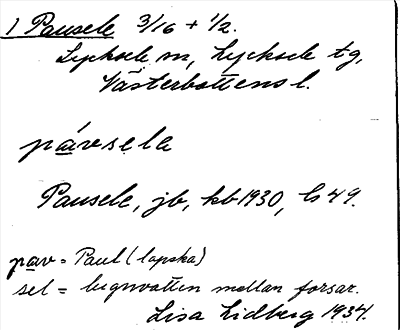 1 Pausele 3/16 + 1/2.
Lycksele sn, Lycksele tg,
Västerbottens l.
pávsela
Pausele, jb, kb 1930, ls 49.
pav = Paul (lapska)
sel = lugnvatten mellan forsar.
Lisa Lidberg 1934.